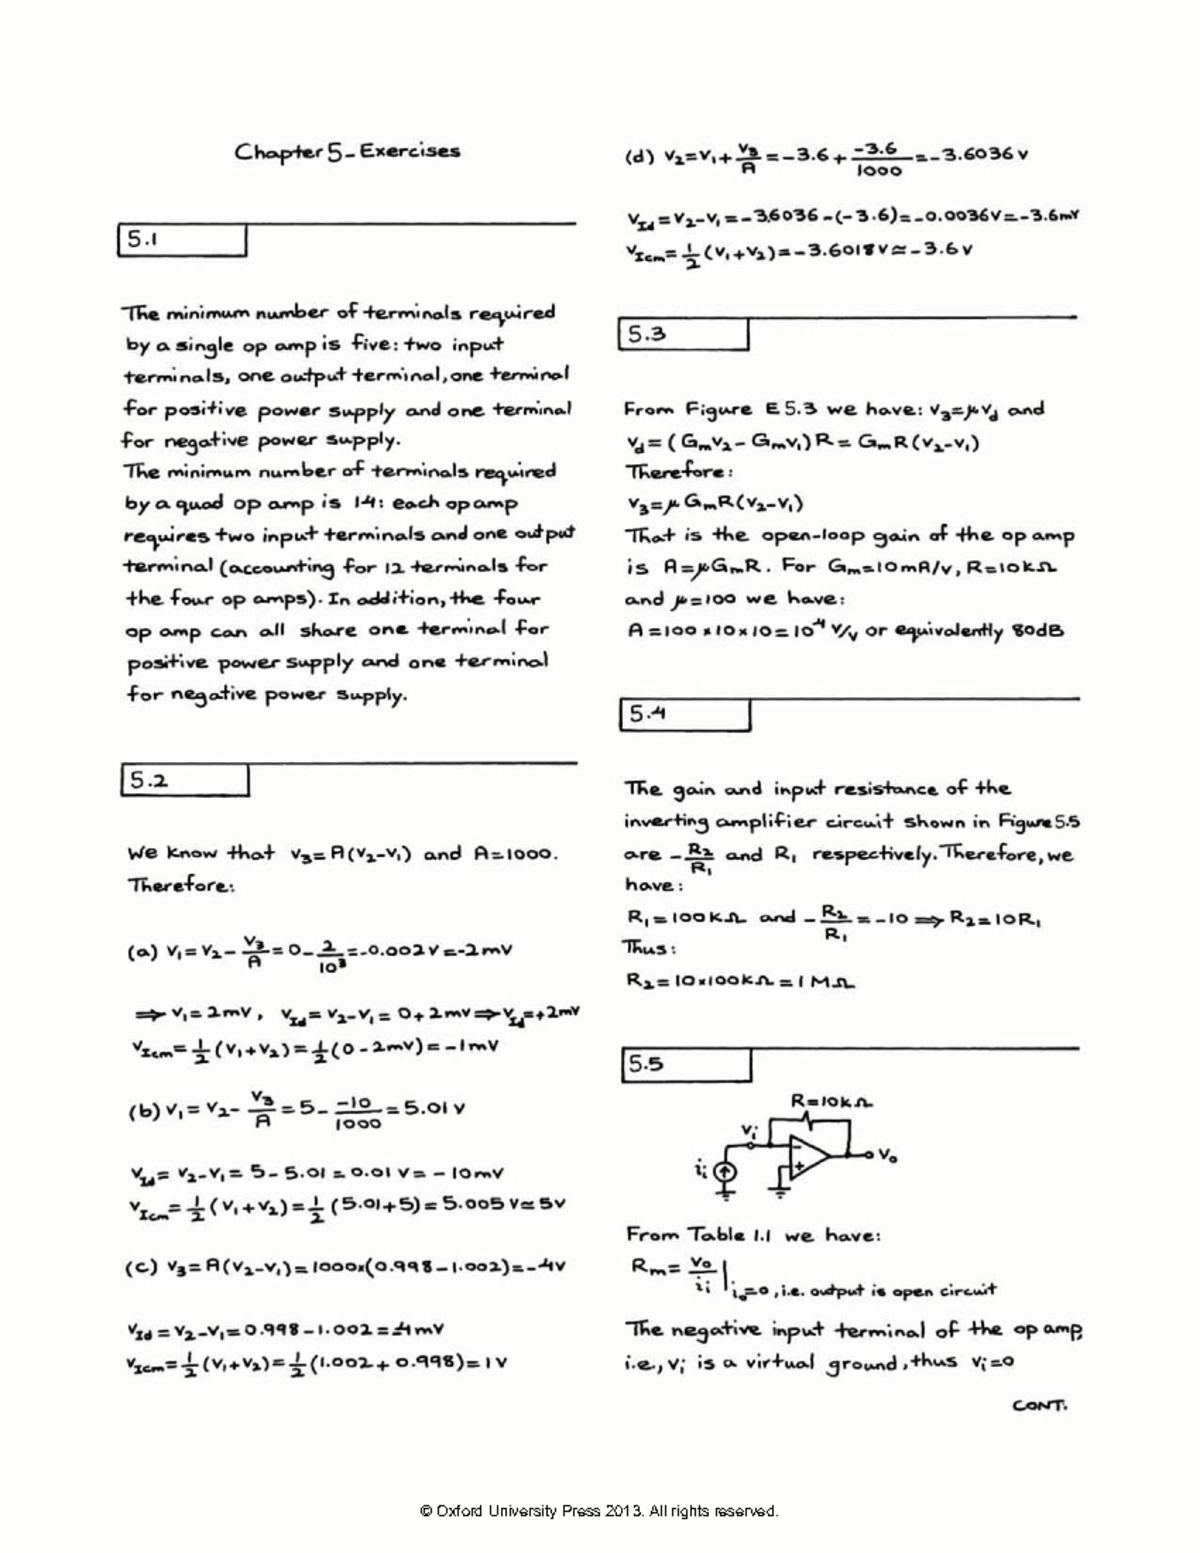 Chapter 5 - Exercises
5.1
The minimum number of terminals required
by a single op amp is five: two input
terminals, one output terminal, one terminal
for positive power supply and one terminal
for negative power supply.
The minimum number of terminals required
by a quad op amp is 14: each op amp
requires two input terminals and one output
terminal (accounting for 12 terminals for
the four op amps). In addition, the four
op amp can all share one terminal for
positive power supply and one terminal
for negative power supply.
5.2
We know that v₃=A(v₂-v₁) and A=1000.
Therefore:
(a) v₁=v₂-v₃/A=0-2/10³=-0.002v=-2mV
⇒ v₁=2mV, v_Id=v₂-v₁=0+2mv⇒v_Id=+2mV
v_Icm=1/2(v₁+v₂)=1/2(0-2mV)=-1mV
(b) v₁=v₂-v₃/A=5- -10/1000=5.01v
v_Id=v₂-v₁=5-5.01=0.01v=-10mV
v_Icm=1/2(v₁+v₂)=1/2(5.01+5)=5.005v≃5v
(c) v₃=A(v₂-v₁)=1000x(0.998-1.002)=-4v
v_Id=v₂-v₁=0.998-1.002=-4mV
v_Icm=1/2(v₁+v₂)=1/2(1.002+0.998)=1V
(d) v₂=v₁+v₃/A=-3.6+-3.6/1000=-3.6036v
v_Id=v₂-v₁=-3.6036-(-3.6)=-0.0036v=-3.6mV
v_Icm=1/2(v₁+v₂)=-3.6018v≃-3.6v
5.3
From Figure E5.3 we have: v₃=μv_d and
v_d=(G_m v₂-G_m v₁)R=G_m R(v₂-v₁)
Therefore:
v₃=μG_m R(v₂-v₁)
That is the open-loop gain of the op amp
is A=μG_m R. For G_m=10mA/v, R=10kΩ
and μ=100 we have:
A=100×10×10=10⁻⁴ V/v or equivalently 80dB
5.4
The gain and input resistance of the
inverting amplifier circuit shown in Figure 5.5
are -R₂/R₁ and R₁ respectively. Therefore, we
have:
R₁=100kΩ and -R₂/R₁=-10⇒R₂=10R₁
Thus:
R₂=10×100kΩ=1MΩ
5.5
R=10kΩ
v_i
i_i
v_o
-
+
From Table 1.1 we have:
R_m=v_o/i_i | i_o=0, i.e. output is open circuit
The negative input terminal of the op amp,
i.e., v_i is a virtual ground, thus v_i=0
CONT.
© Oxford University Press 2013. All rights reserved.